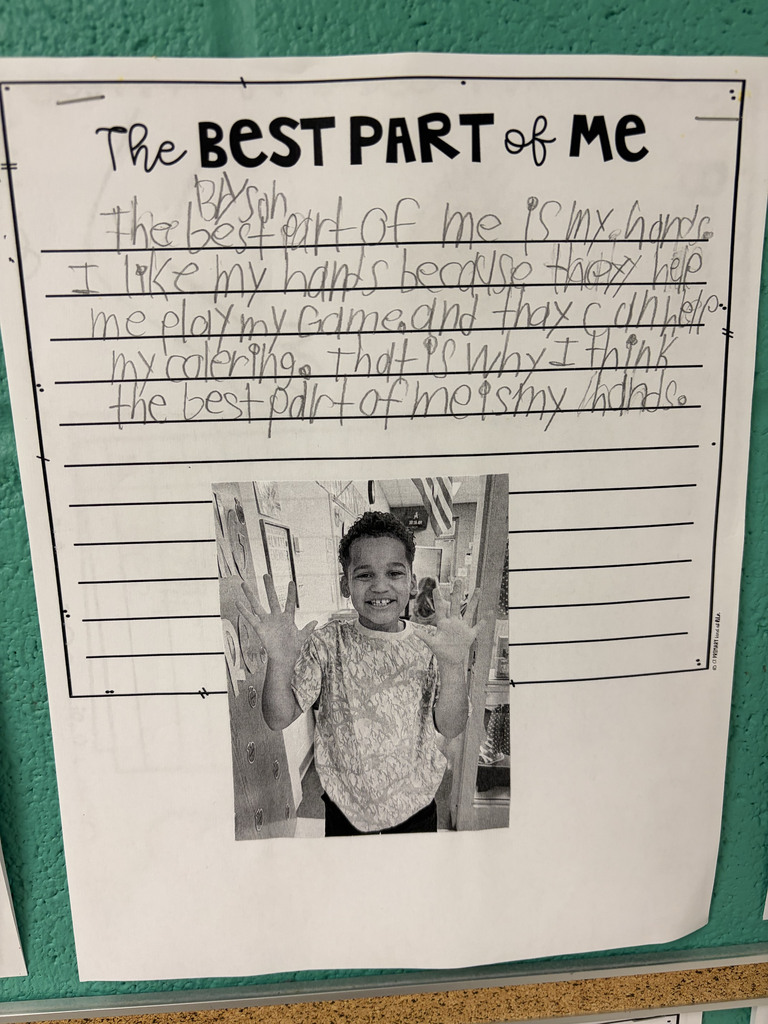 The BEST PART of Me
Bryson
The best part of me is my hands.
I like my hands because thay help
me play my Game. and thay can help
my colering. That is why I think
the best part of me is my hands.